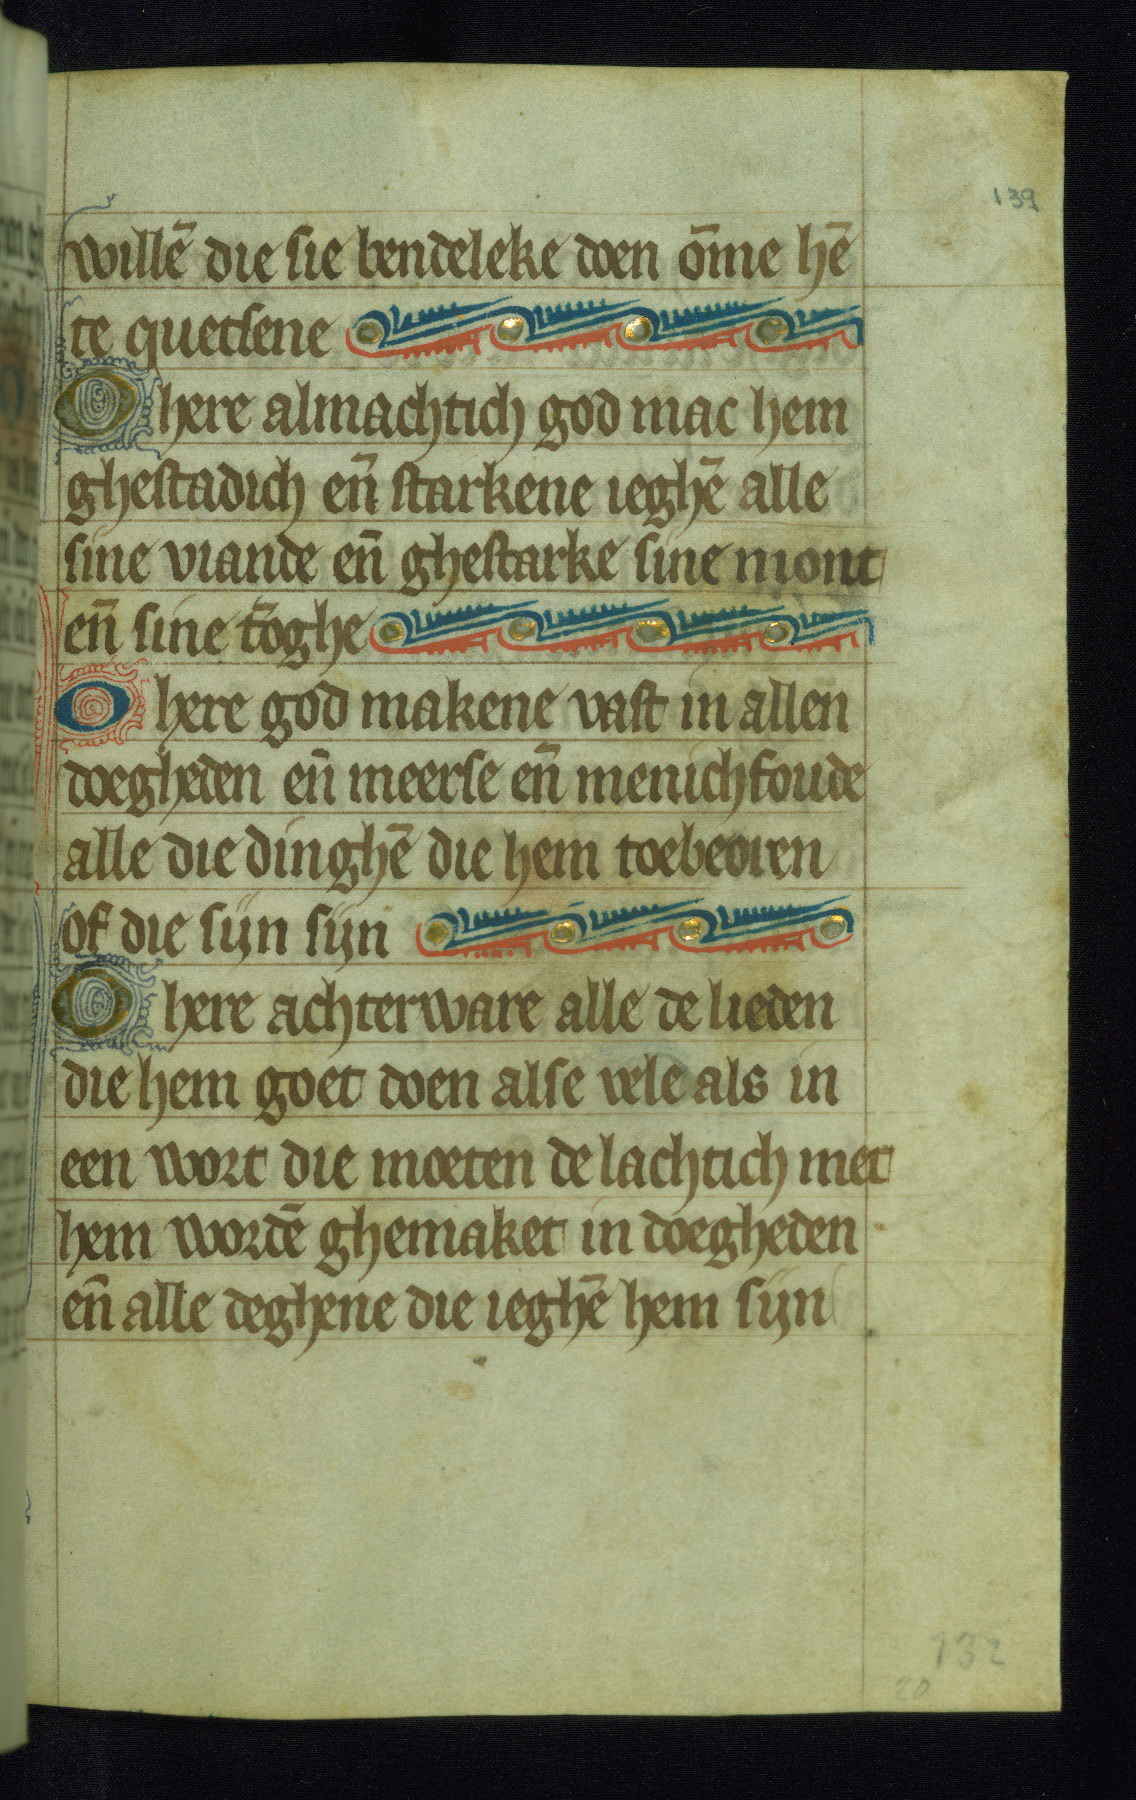 139
willē die sie bendeleke doen ōme hē
te quetsene
O here almachtich god mac hem
ghestadich en̄ starkene ieghē alle
sine viande en̄ ghestarke sine mont
en̄ sine t̄oghe
O here god makene vast in allen
doegheden en̄ meerse en̄ menichfoude
alle die dinghē die hem toebeoren
of die sijn sijn
O here achterware alle de lieden
die hem goet doen alse vele als in
een wort die moeten delachtich met
hem wordē ghemaket in doegheden
en̄ alle deghene die ieghē hem sijn
132